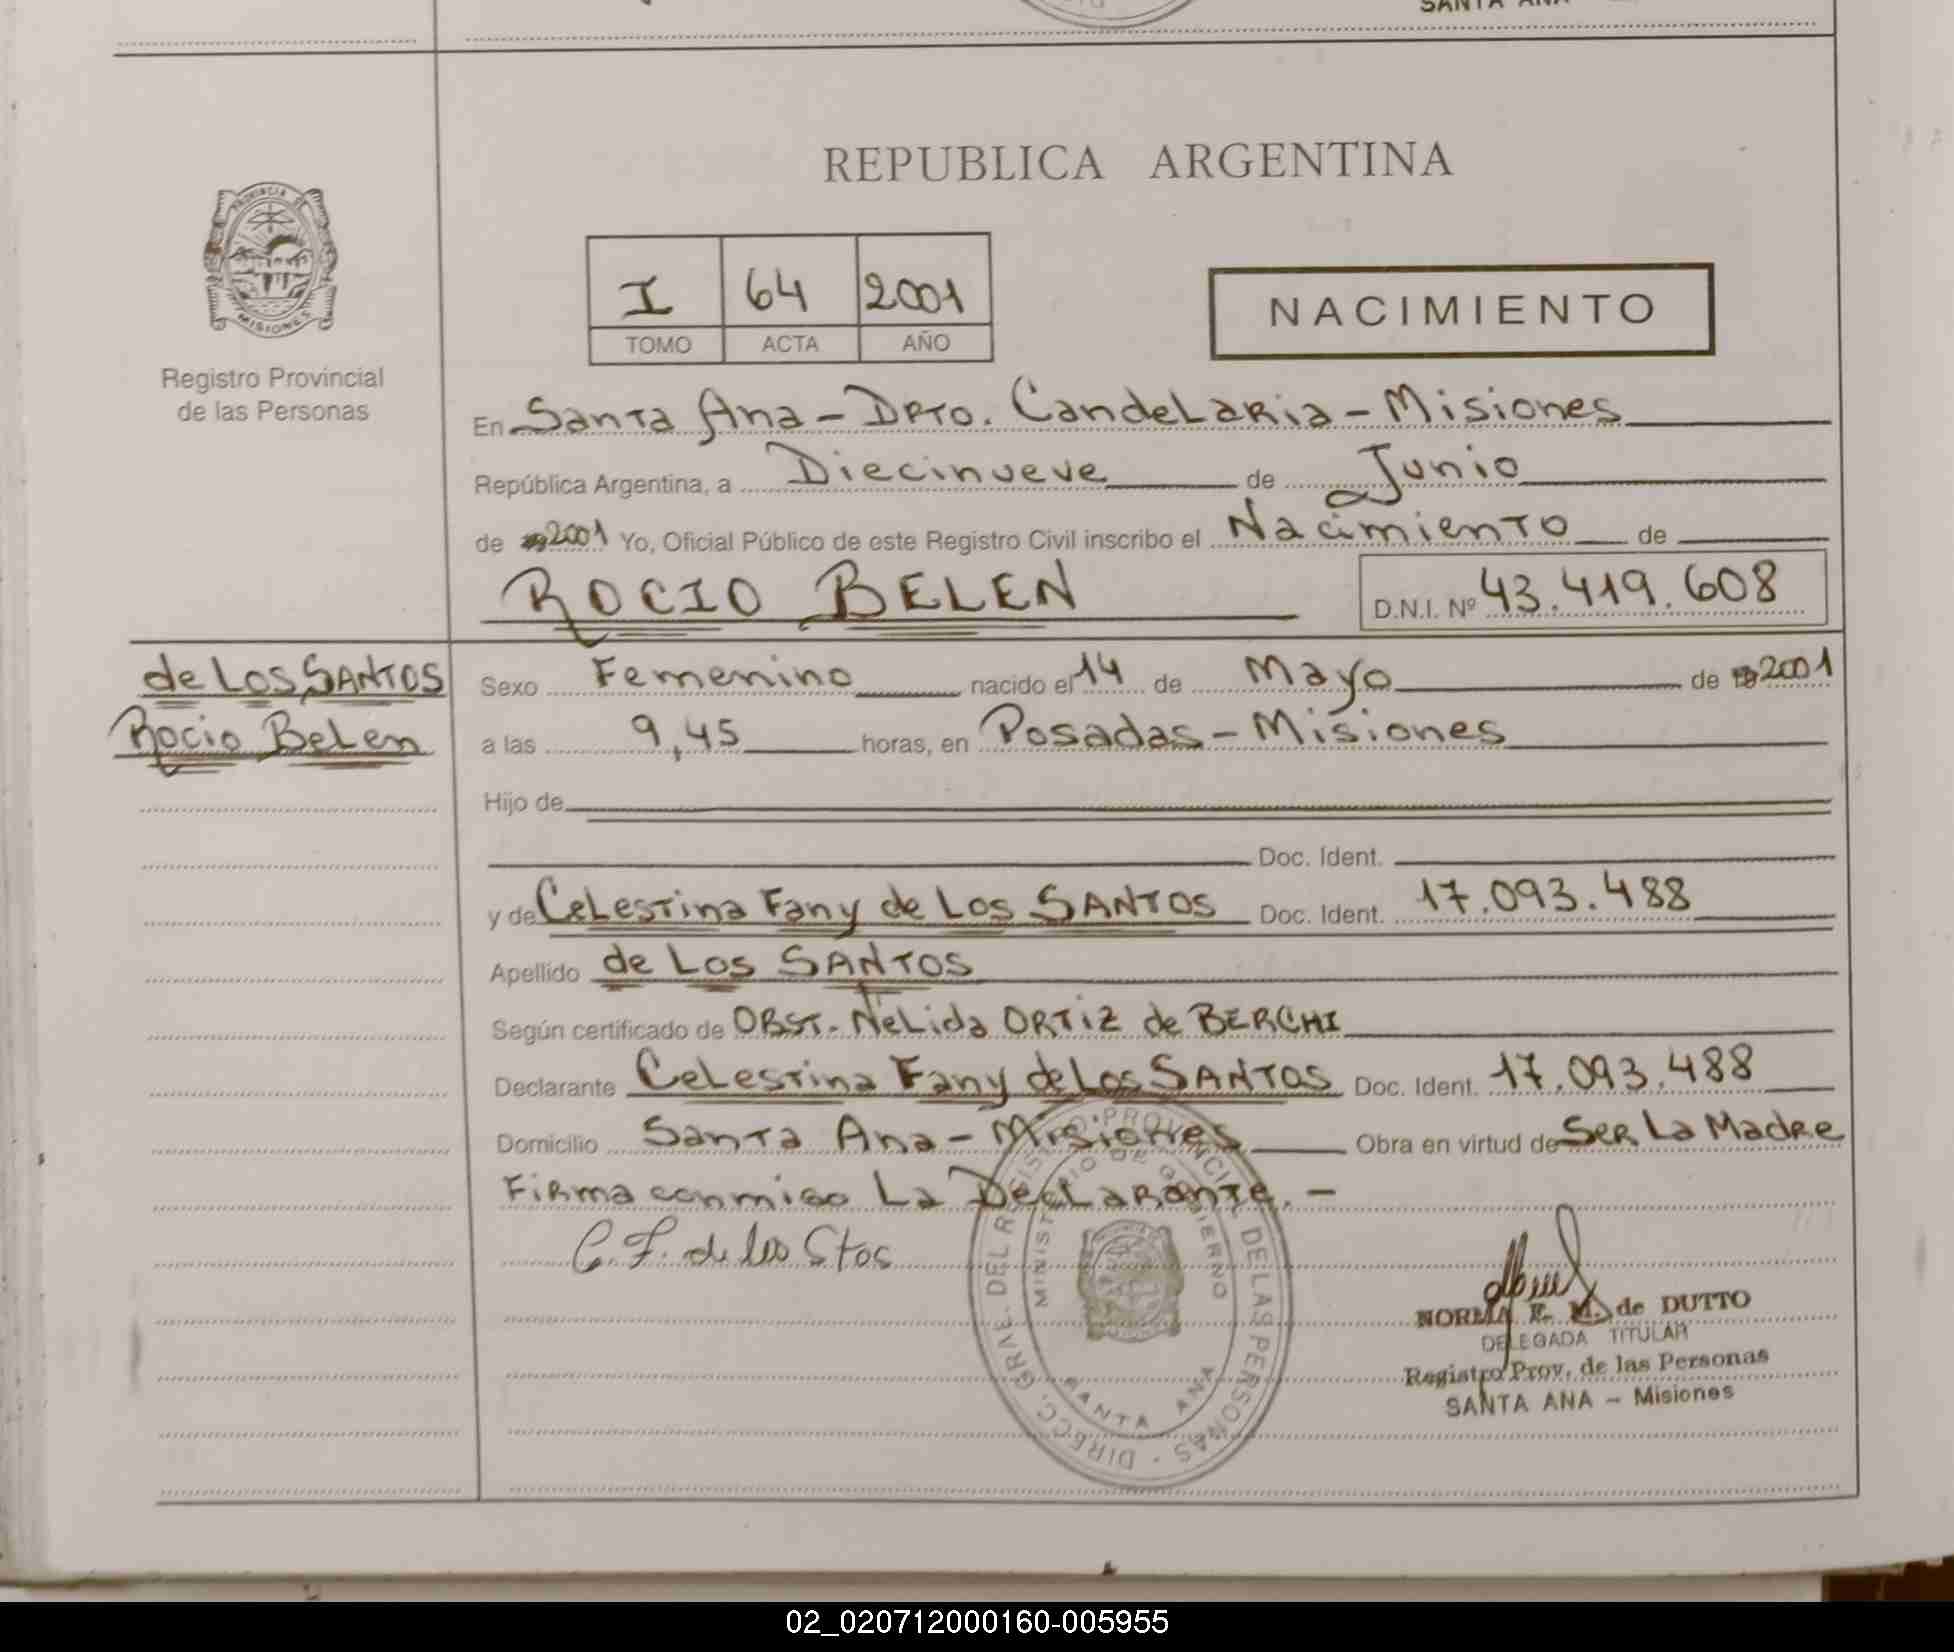 SANTA ANA
PROVINCIA DE
MISIONES
Registro Provincial
de las Personas
REPUBLICA ARGENTINA
I 64 2001
TOMO ACTA AÑO
NACIMIENTO
En Santa Ana - Dpto. Candelaria - Misiones
República Argentina, a Diecinueve de Junio
de 2001 Yo, Oficial Público de este Registro Civil inscribo el Nacimiento de
ROCIO BELEN D.N.I. Nº 43.419.608
de Los SANTOS
Rocio Belen
Sexo Femenino nacido el 14 de Mayo de 2001
a las 9,45 horas, en Posadas - Misiones
Hijo de
Doc. Ident.
y de Celestina Fany de Los SANTOS Doc. Ident. 17.093.488
Apellido de Los SANTOS
Según certificado de OBST. Nelida ORTIZ de BERCHI
Declarante Celestina Fany de Los SANTOS Doc. Ident. 17.093.488
Domicilio Santa Ana - Misiones Obra en virtud de Ser La Madre
Firma conmigo La Declarante. -
C. F. de los Stos
DIRECC. GRAL. DEL REGISTRO PROVINCIAL DE LAS PERSONAS
MINISTERIO DE GOBIERNO
SANTA ANA
NORMA E. M. de DUTTO
DELEGADA TITULAR
Registro Prov. de las Personas
SANTA ANA - Misiones
02_020712000160-005955